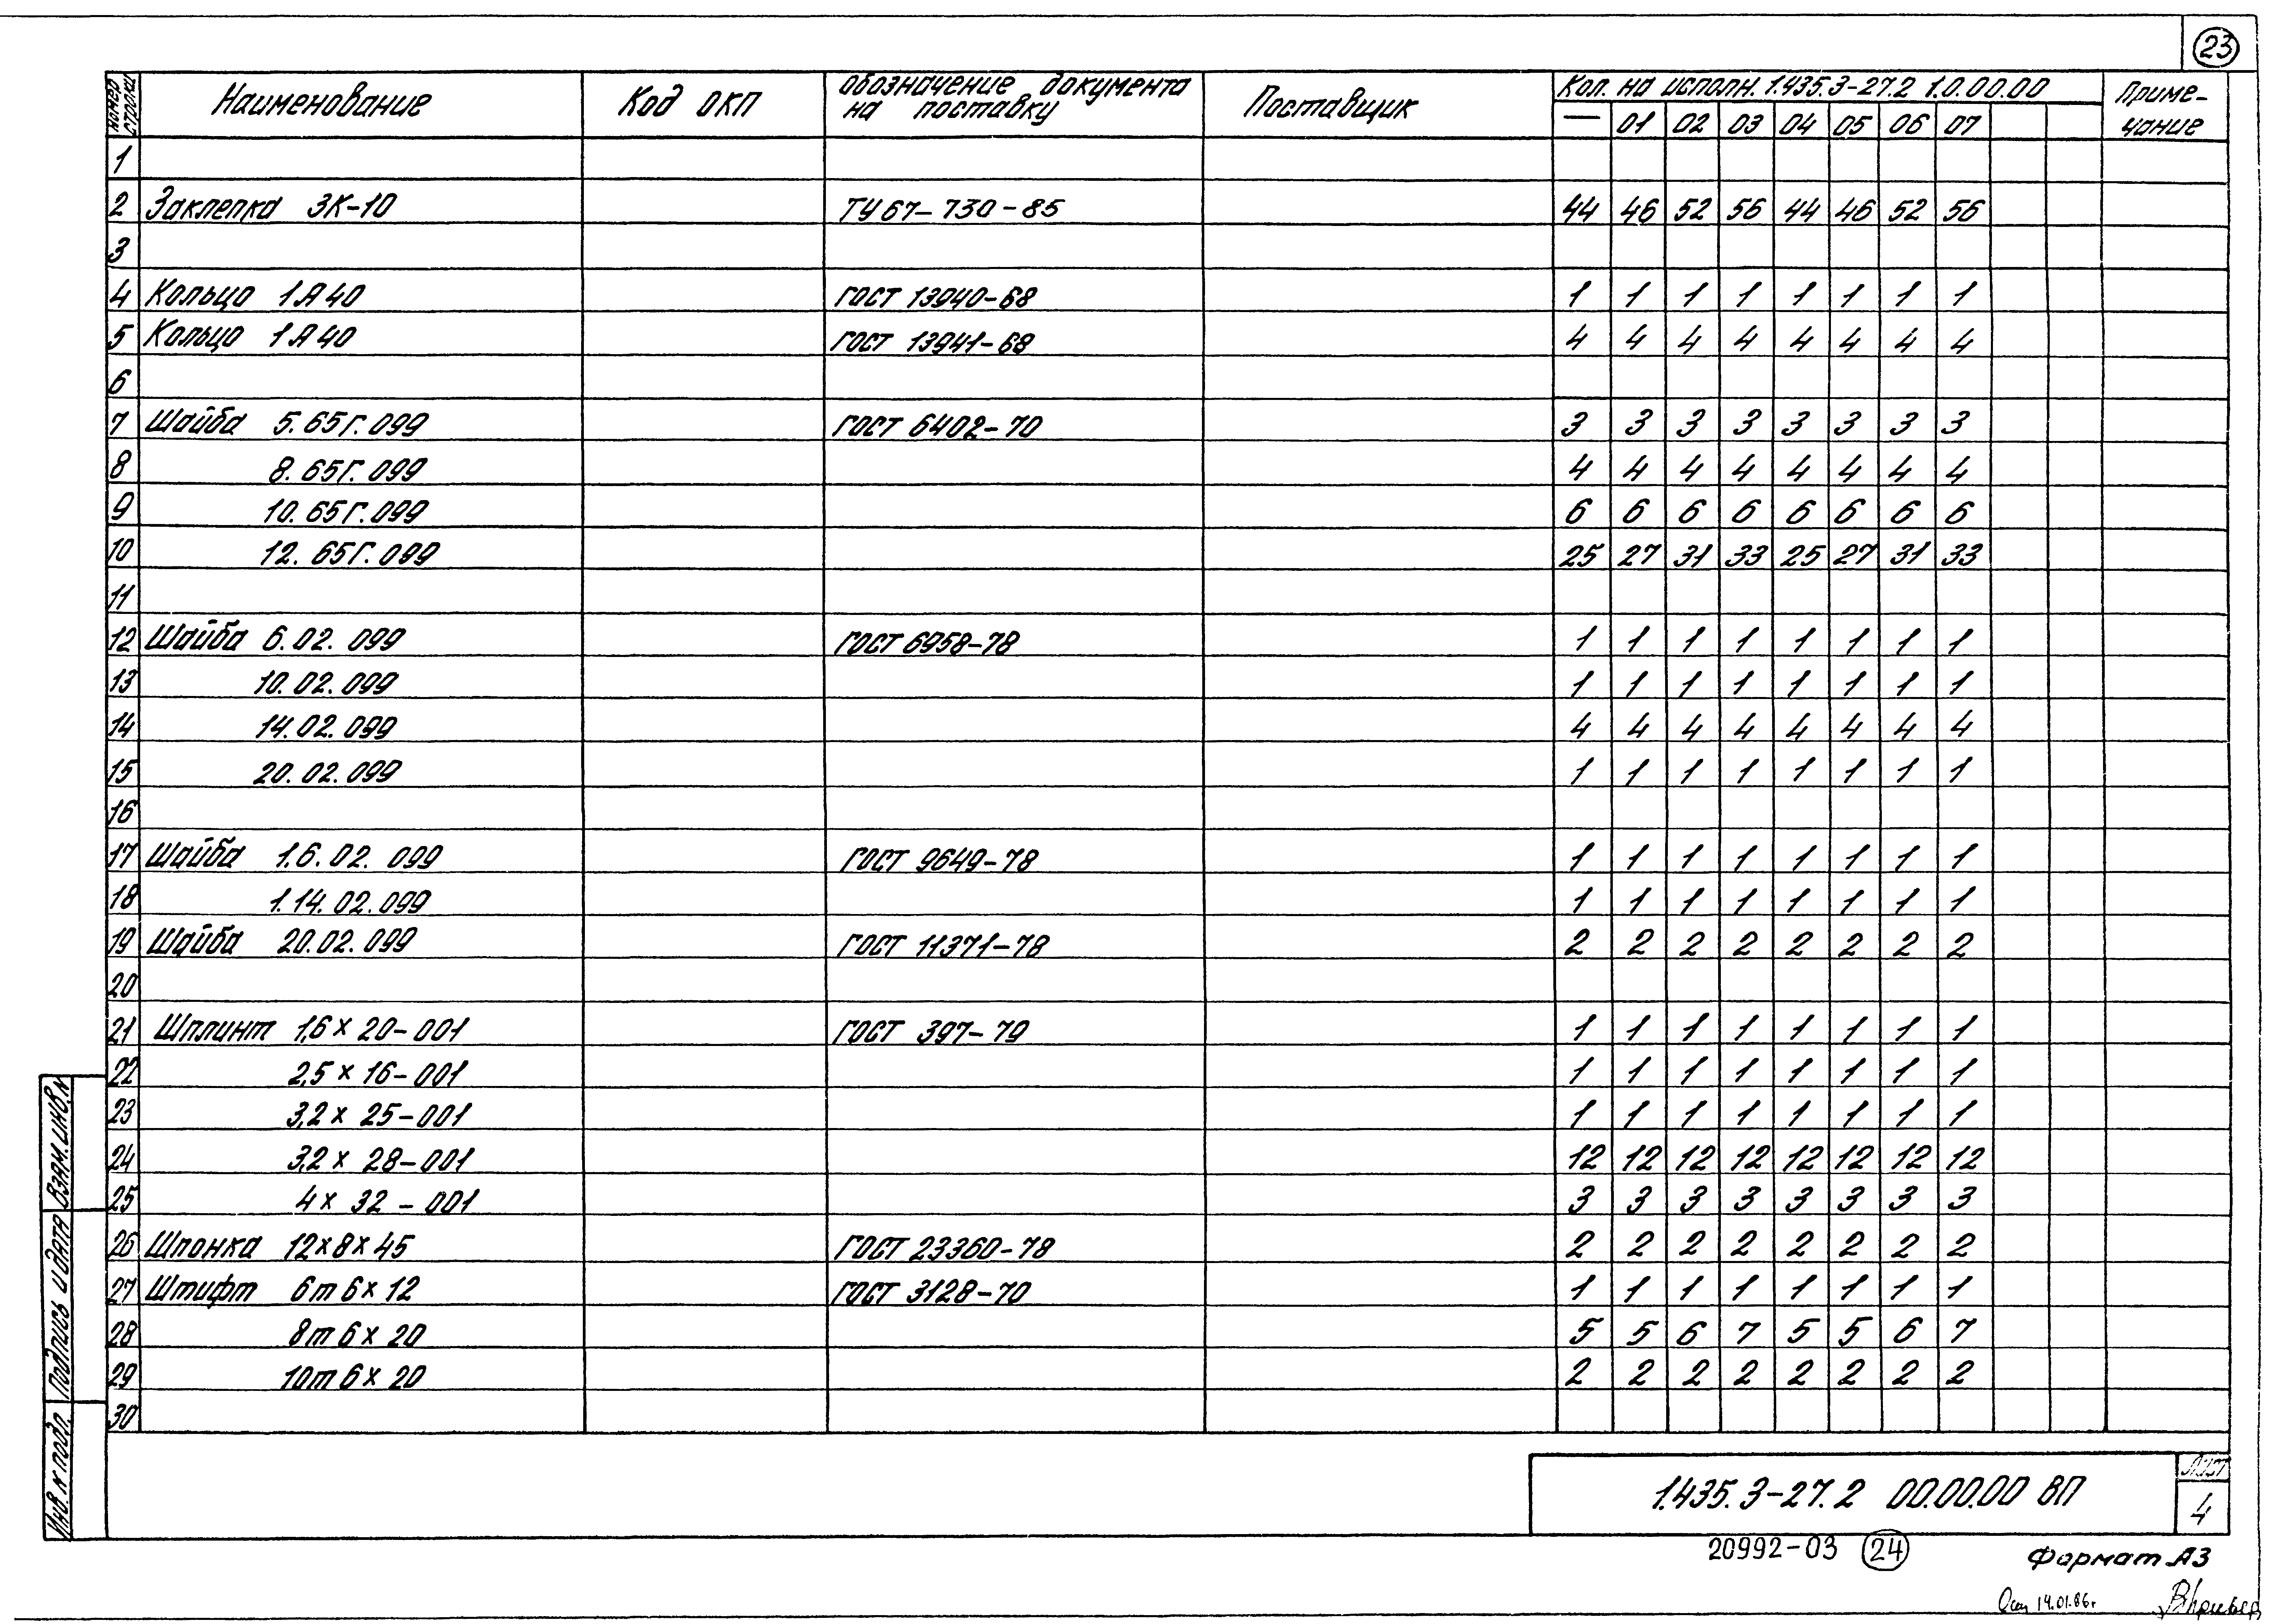 23
Номер строки Наименование Код ОКП Обозначение документа на поставку Поставщик Кол. на исполн. 1.435.3-27.2 1.0.00.00 Приме-чание
— 01 02 03 04 05 06 07
1
2 Заклепка ЗК-10 ТУ67-730-85 44 46 52 56 44 46 52 56
3
4 Кольцо 1А40 ГОСТ 13940-68 1 1 1 1 1 1 1 1
5 Кольцо 1А40 ГОСТ 13941-68 4 4 4 4 4 4 4 4
6
7 Шайба 5.65Г.099 ГОСТ 6402-70 3 3 3 3 3 3 3 3
8 8.65Г.099 4 4 4 4 4 4 4 4
9 10.65Г.099 6 6 6 6 6 6 6 6
10 12.65Г.099 25 27 31 33 25 27 31 33
11
12 Шайба 6.02.099 ГОСТ 6958-78 1 1 1 1 1 1 1 1
13 10.02.099 1 1 1 1 1 1 1 1
14 14.02.099 4 4 4 4 4 4 4 4
15 20.02.099 1 1 1 1 1 1 1 1
16
17 Шайба 1.6.02.099 ГОСТ 9649-78 1 1 1 1 1 1 1 1
18 1.14.02.099 1 1 1 1 1 1 1 1
19 Шайба 20.02.099 ГОСТ 11371-78 2 2 2 2 2 2 2 2
20
21 Шплинт 1,6×20-001 ГОСТ 397-79 1 1 1 1 1 1 1 1
22 2,5×16-001 1 1 1 1 1 1 1 1
23 3,2×25-001 1 1 1 1 1 1 1 1
24 3,2×28-001 12 12 12 12 12 12 12 12
25 4×32-001 3 3 3 3 3 3 3 3
26 Шпонка 12×8×45 ГОСТ 23360-78 2 2 2 2 2 2 2 2
27 Штифт 6m6×12 ГОСТ 3128-70 1 1 1 1 1 1 1 1
28 8m6×20 5 5 6 7 5 5 6 7
29 10m6×20 2 2 2 2 2 2 2 2
30
Взам. инв. N
Подпись и дата
Инв. N подл.
1.435.3-27.2 00.00.00 ВП
Лист
4
20992-03 24
Формат А3
14.01.86г